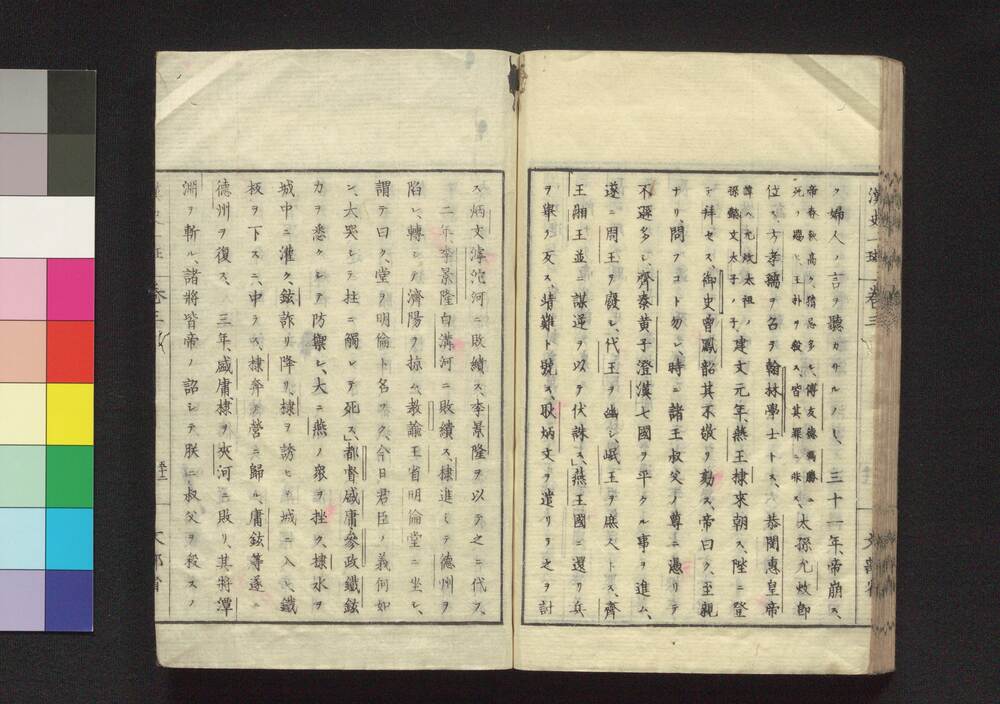 漢史一班 巻三
ク婦人ノ言ヲ聽カサルノミ、三十一年、帝崩ス、
帝春秋高ク、猜忌多シ、傅友德馮勝
死ヲ賜ヒ、王朴ヲ殺ス、皆其罪ニ非ス、太孫允炆卽
位ス、方孝孺ヲ名ヲ翰林學士トス、恭閔惠皇帝
諱ハ允炆太祖ノ
孫懿文太子ノ子、建文元年、燕王棣來朝ス、陛ニ登
テ拜セス、御史曾鳳韶其不敬ヲ劾ス、帝曰ク、至親
ナリ、問フコト勿レ、時ニ諸王叔父ノ尊ニ憑リテ
不遜多シ、齊泰黄子澄漢七國ヲ平クル事ヲ進ム、
遂ニ周王ヲ廢シ、代王ヲ幽シ、岷王ヲ庶人トス、齊
王湘王並ニ謀逆ヲ以テ伏誅ス」燕王國ニ還リ兵
ヲ擧ケ反ス、靖難ト號ス、耿炳文ヲ遣リヲ之ヲ討
ス、炳文滹沱河ニ敗績ス、李景隆ヲ以テ之ニ代フ、
二年、李景隆白溝河ニ敗績ス、棣進ミテ德州ヲ
陷レ、轉シテ濟陽ヲ掠ム、教諭王省明倫堂ニ坐シ、
謂テ曰ク、堂ヲ明倫ト名ツク、今日君臣ノ義何如
ン、大哭シテ柱ニ觸レテ死ス」都督盛庸參政鐵鉉
力ヲ悉クシテ防禦シ、大ニ燕ノ衆ヲ挫ク、棣水ヲ
城中ニ灌ク、鉉詐リ降リ、棣ヲ誘ヒテ城ニ入レ、鐵
板ヲ下スニ、中ラス、棣奔テ營ニ歸ル、庸鉉等遂ニ
德州ヲ復ス、三年、盛庸棣ヲ夾河ニ敗リ、其將譚
淵ヲ斬ル、諸將皆帝ノ詔シテ朕ニ叔父ヲ殺スノ